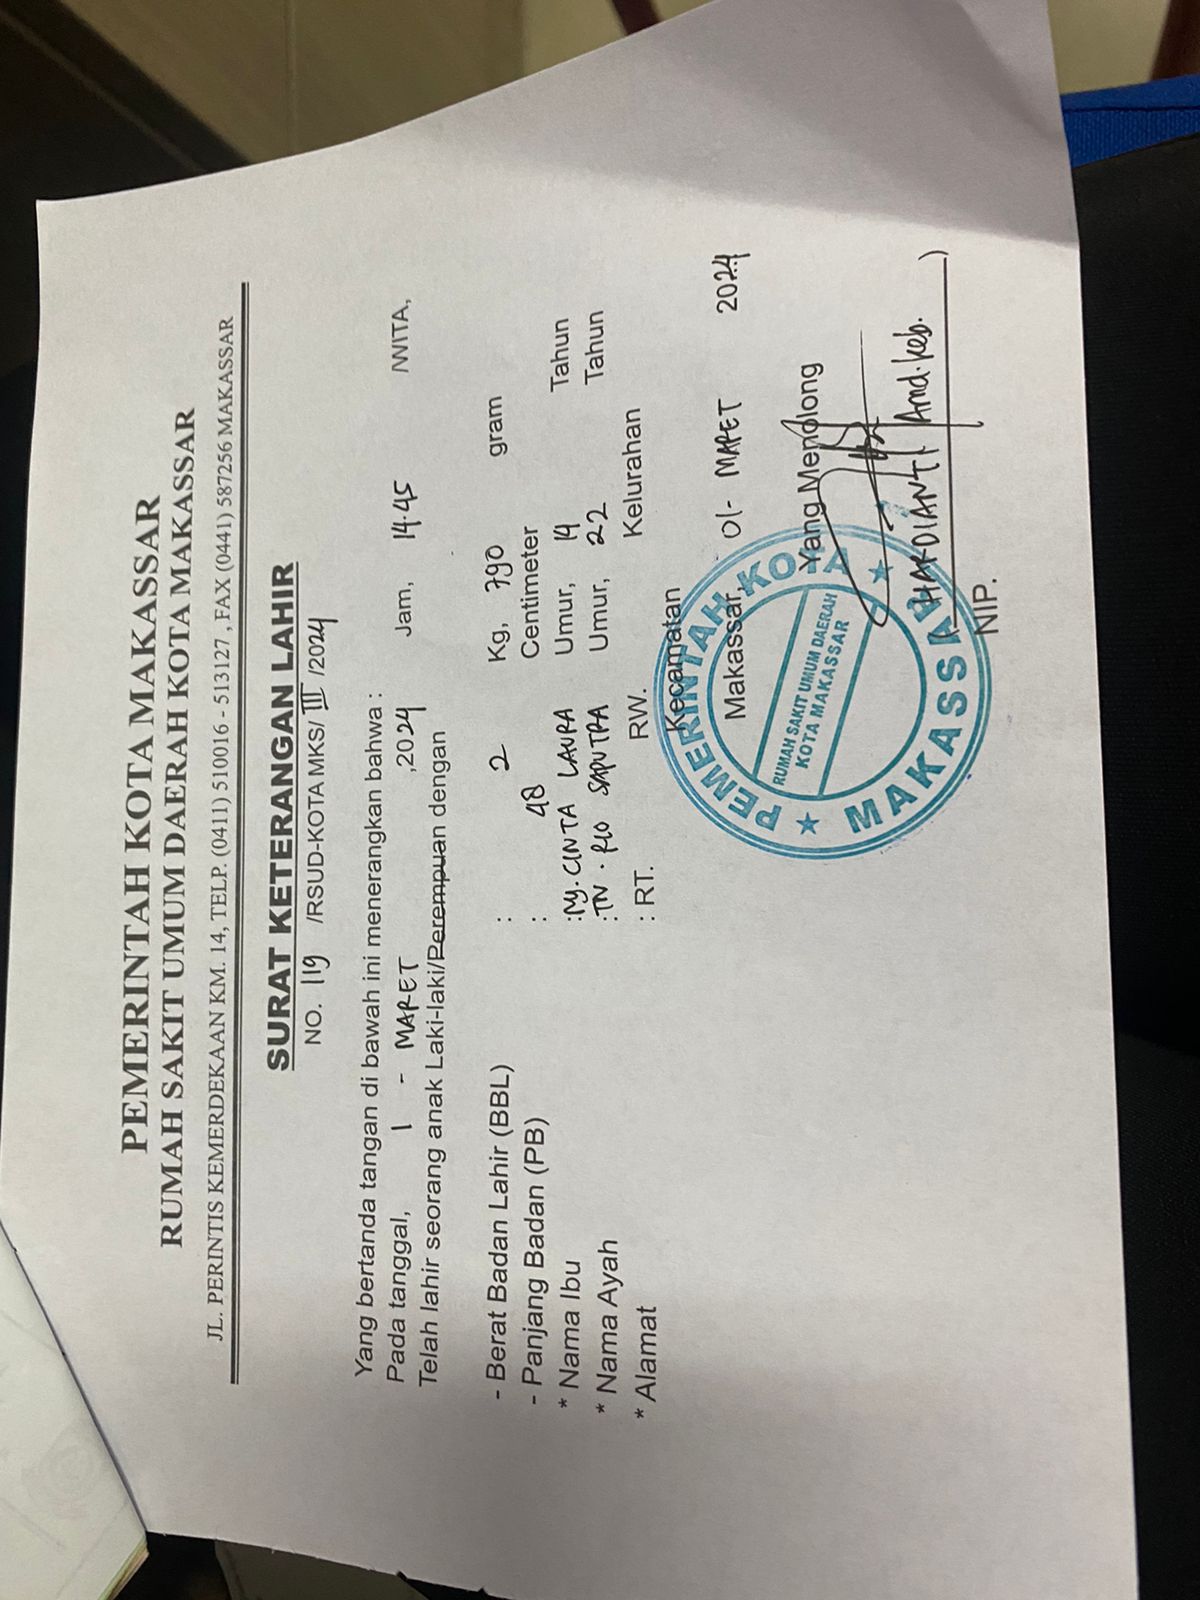 PEMERINTAH KOTA MAKASSAR
RUMAH SAKIT UMUM DAERAH KOTA MAKASSAR
JL. PERINTIS KEMERDEKAAN KM. 14, TELP. (0411) 510016 - 513127 , FAX (0441) 587256 MAKASSAR
SURAT KETERANGAN LAHIR
NO. 119 /RSUD-KOTA MKS/ III /2024
Yang bertanda tangan di bawah ini menerangkan bahwa :
Pada tanggal, 1 - MARET ,2024 Jam, 14.45 WITA,
Telah lahir seorang anak Laki-laki/Perempuan dengan
- Berat Badan Lahir (BBL) : 2 Kg, 790 gram
- Panjang Badan (PB) : 48 Centimeter
* Nama Ibu : Ny. CINTA LAURA Umur, 14 Tahun
* Nama Ayah : TN. RIO SAPUTRA Umur, 22 Tahun
* Alamat : RT. RW. Kelurahan
Kecamatan
Makassar, 01- MARET 2024
Yang Menolong
PEMERINTAH KOTA
RUMAH SAKIT UMUM DAERAH
KOTA MAKASSAR
MAKASSAR
( HARDIANTI Amd.keb. )
NIP.